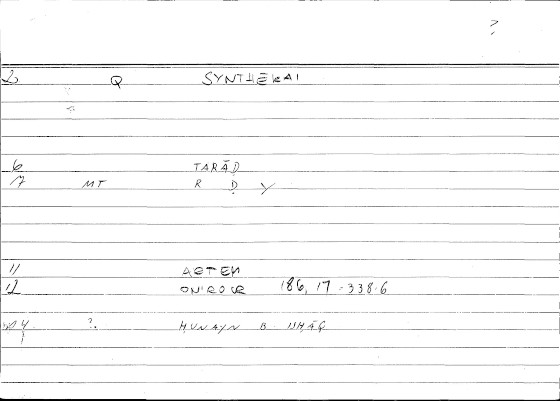 ?
2 Q SYNTHEKAI
6 TARĀḌ
7 MT R Ḍ Y
11 ARTEM
12 ONIROCR 186, 17 = 338.6
? ḤUNAYN B. ISḤĀQ